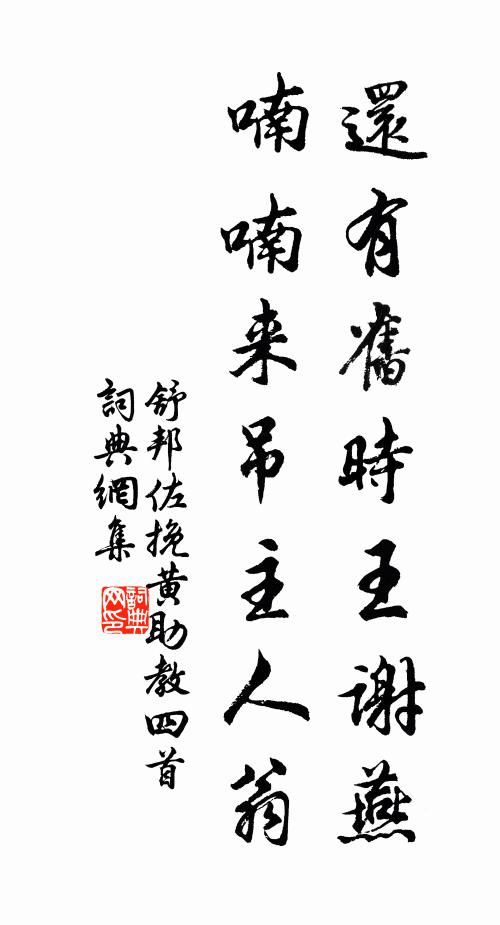 還有舊時王谢燕
喃喃来吊主人翁
舒邦佐挽黄助教四首
詞典網集
詞典
网印